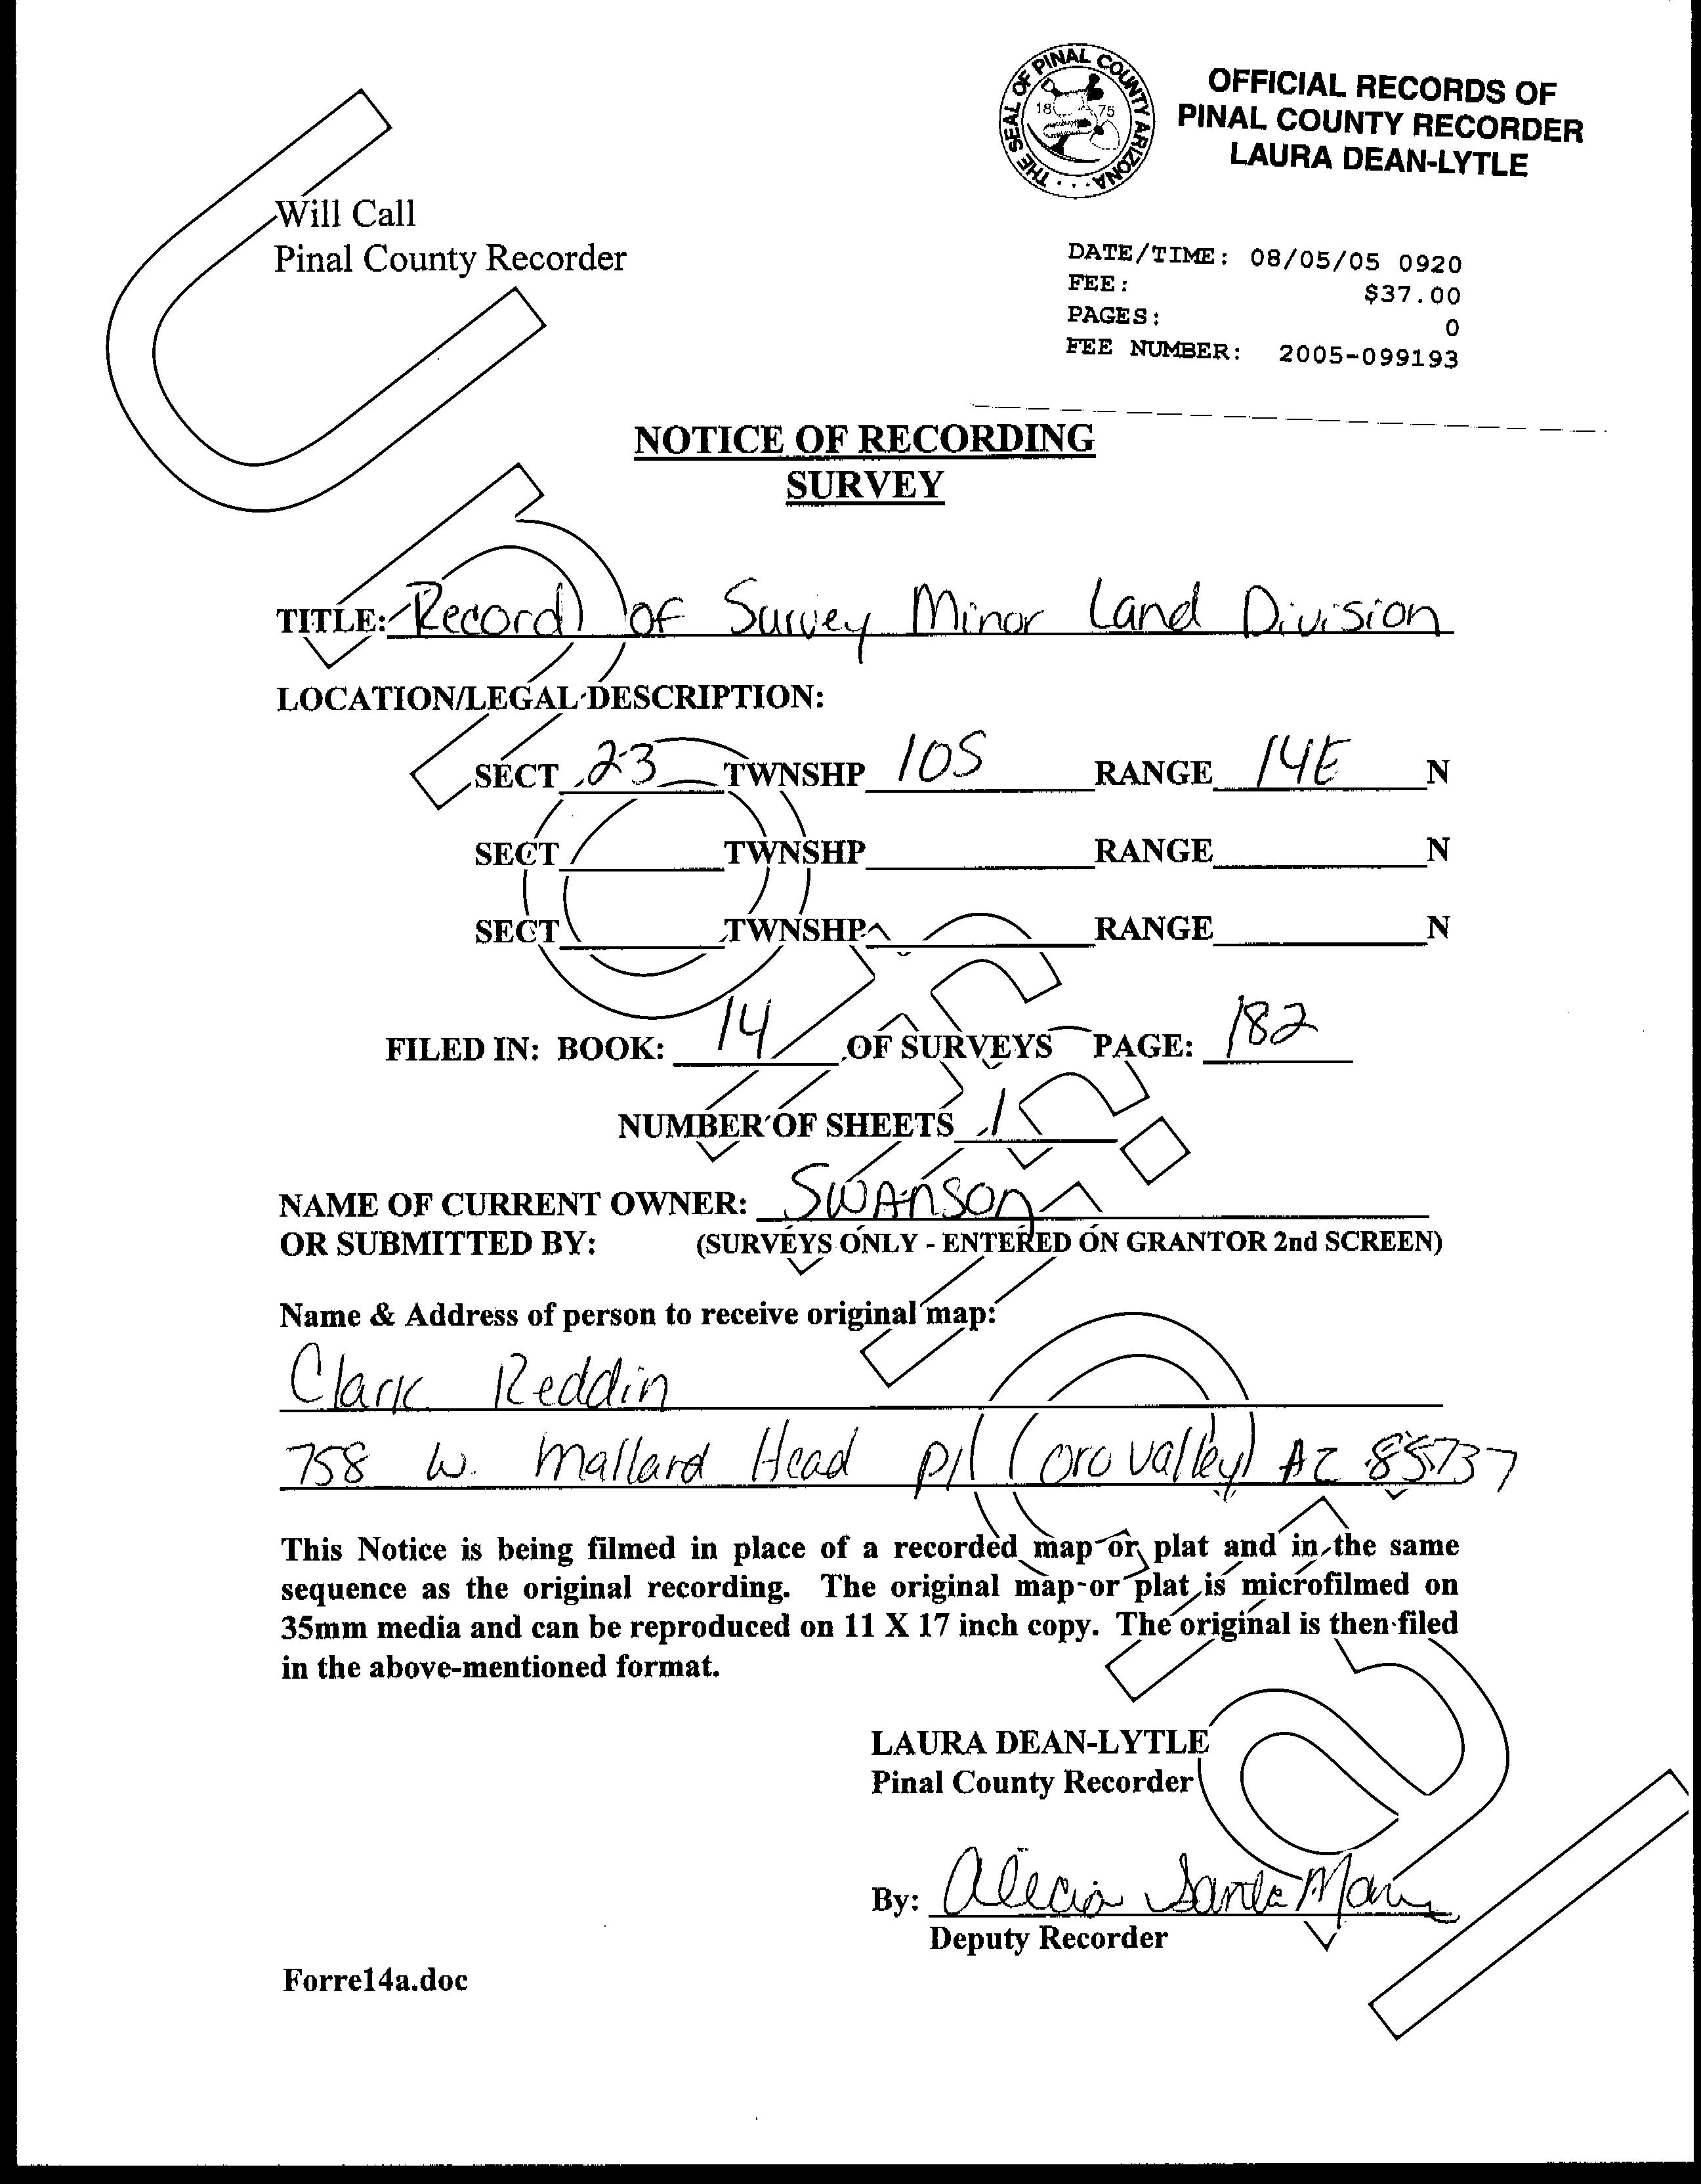 THE SEAL OF PINAL COUNTY ARIZONA
18 75
OFFICIAL RECORDS OF
PINAL COUNTY RECORDER
LAURA DEAN-LYTLE
Will Call
Pinal County Recorder
DATE/TIME: 08/05/05 0920
FEE: $37.00
PAGES: 0
FEE NUMBER: 2005-099193
NOTICE OF RECORDING
SURVEY
TITLE: Record of Survey Minor Land Division
LOCATION/LEGAL DESCRIPTION:
SECT 23 TWNSHP 10S RANGE 14E N
SECT TWNSHP RANGE N
SECT TWNSHP RANGE N
FILED IN: BOOK: 14 OF SURVEYS PAGE: 182
NUMBER OF SHEETS 1
NAME OF CURRENT OWNER: SWANSON
OR SUBMITTED BY: (SURVEYS ONLY - ENTERED ON GRANTOR 2nd SCREEN)
Name & Address of person to receive original map:
Clark Reddin
758 W. Mallard Head Pl Oro Valley AZ 85737
This Notice is being filmed in place of a recorded map or plat and in the same
sequence as the original recording. The original map or plat is microfilmed on
35mm media and can be reproduced on 11 X 17 inch copy. The original is then filed
in the above-mentioned format.
LAURA DEAN-LYTLE
Pinal County Recorder
By: Alecia Santa Mary
Deputy Recorder
Forre14a.doc
Unofficial